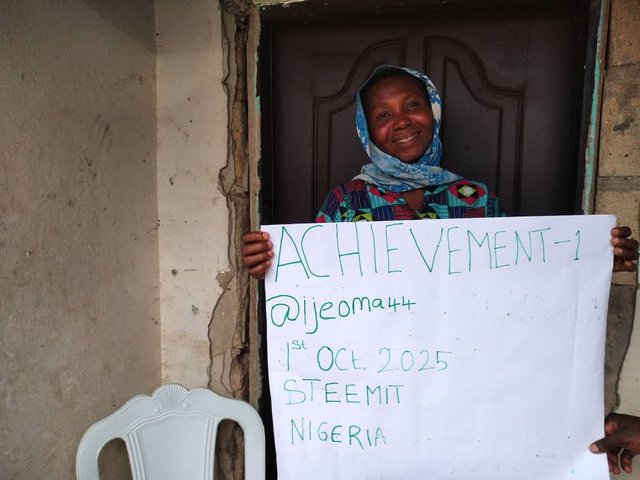 ACHIEVEMENT-1
@ijeoma44
1st Oct, 2025
STEEMIT
NIGERIA